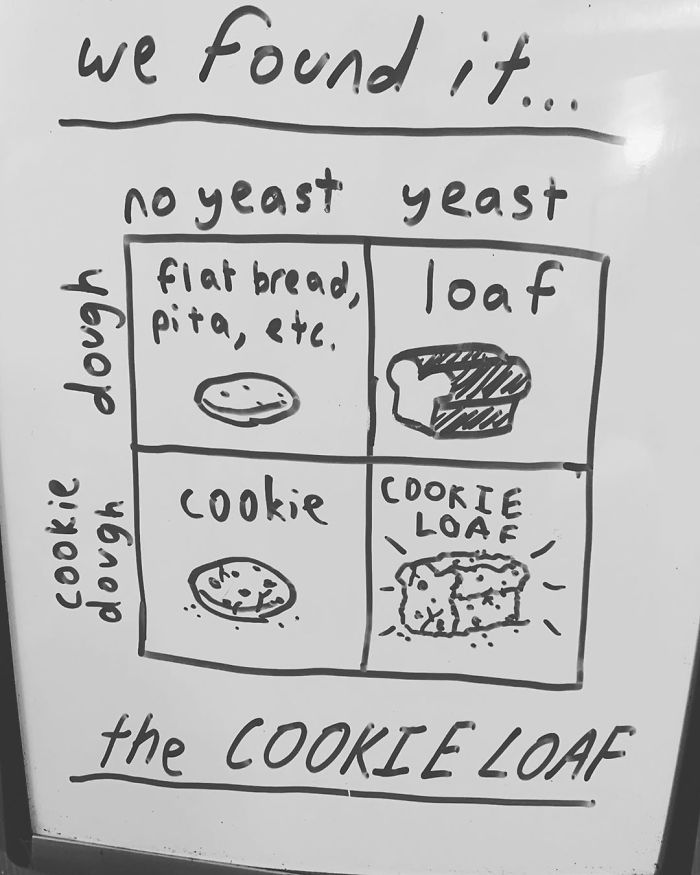 we found it...
no yeast yeast
dough
flat bread,
pita, etc.
loaf
cookie
dough
cookie
COOKIE
LOAF
the COOKIE LOAF